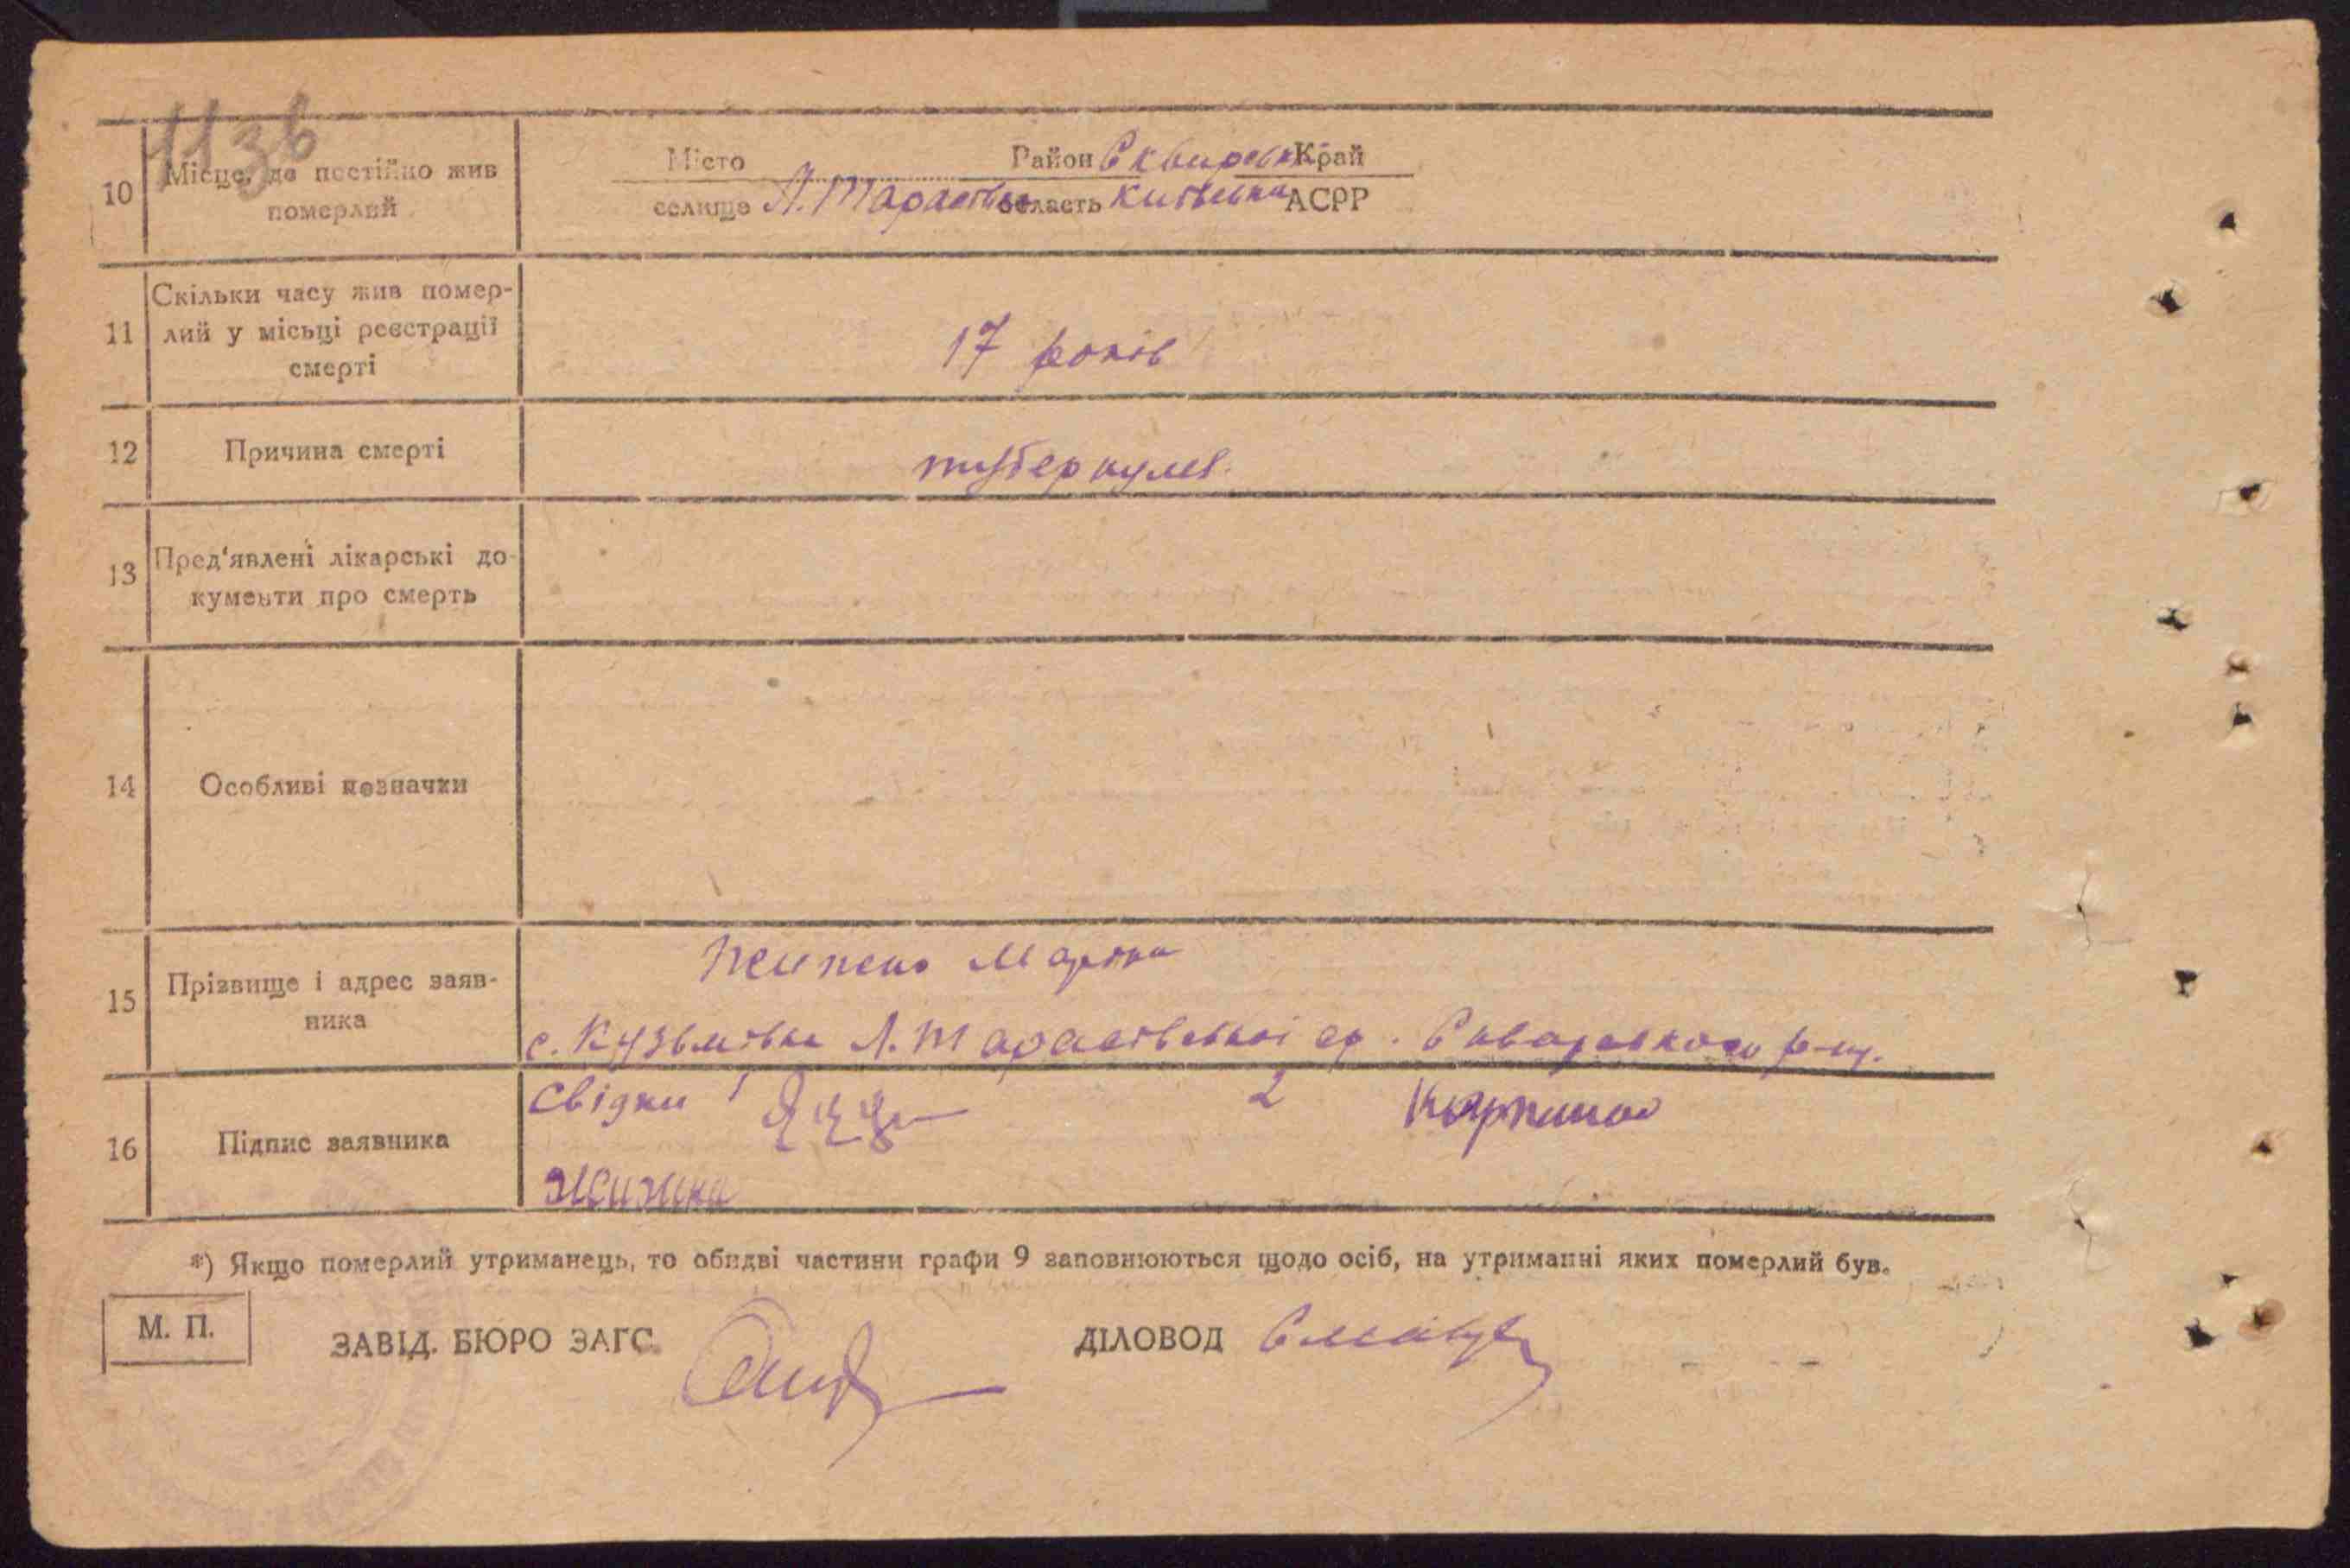 113в
10
Місце, де постійно жив
померлий
Місто Район Сквирськ Край
селище Л. Тарасівка область Київська АСРР
11
Скільки часу жив помер-
лий у місьці реєстрації
смерті
17 років
12
Причина смерті
туберкульоз
13
Пред'явлені лікарські до-
кументи про смерть
14
Особливі позначки
15
Прізвище і адрес заяв-
ника
Марія
с. Кузьмівка Л. Тарасівської ср. Сквирського р-ну.
16
Підпис заявника
Свідки 1 2
*) Якщо померлий утриманець, то обидві частини графи 9 заповнюються щодо осіб, на утриманні яких померлий був.
М. П.
ЗАВІД. БЮРО ЗАГС.
ДІЛОВОД